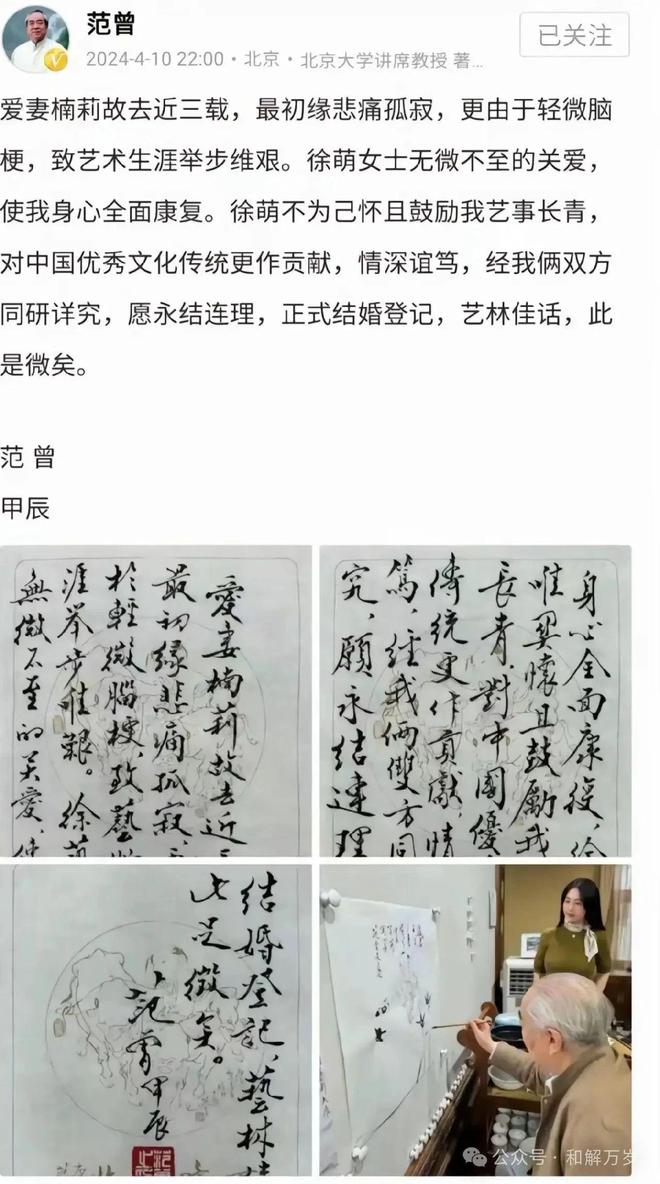 范曾
2024-4-10 22:00·北京·北京大学讲席教授 著...
已关注
爱妻楠莉故去近三载，最初缘悲痛孤寂，更由于轻微脑
梗，致艺术生涯举步维艰。徐萌女士无微不至的关爱，
使我身心全面康复。徐萌不为己怀且鼓励我艺事长青，
对中国优秀文化传统更作贡献，情深谊笃，经我俩双方
同研详究，愿永结连理，正式结婚登记，艺林佳话，此
是微矣。
范 曾
甲辰
愛妻楠莉故去近三
最初缘悲痛孤寂，
於輕微腦梗，致藝
涯举步惟艱。徐萌
無微不至的关愛，使
身心全面康復，徐
唯 懷且鼓勵我
長青，對中國優
傳統更作貢獻，情
篤，經我倆雙方同
究，願永结連理
结婚登記，藝林
此足微矣。
范曾甲辰
公众号·和解万岁